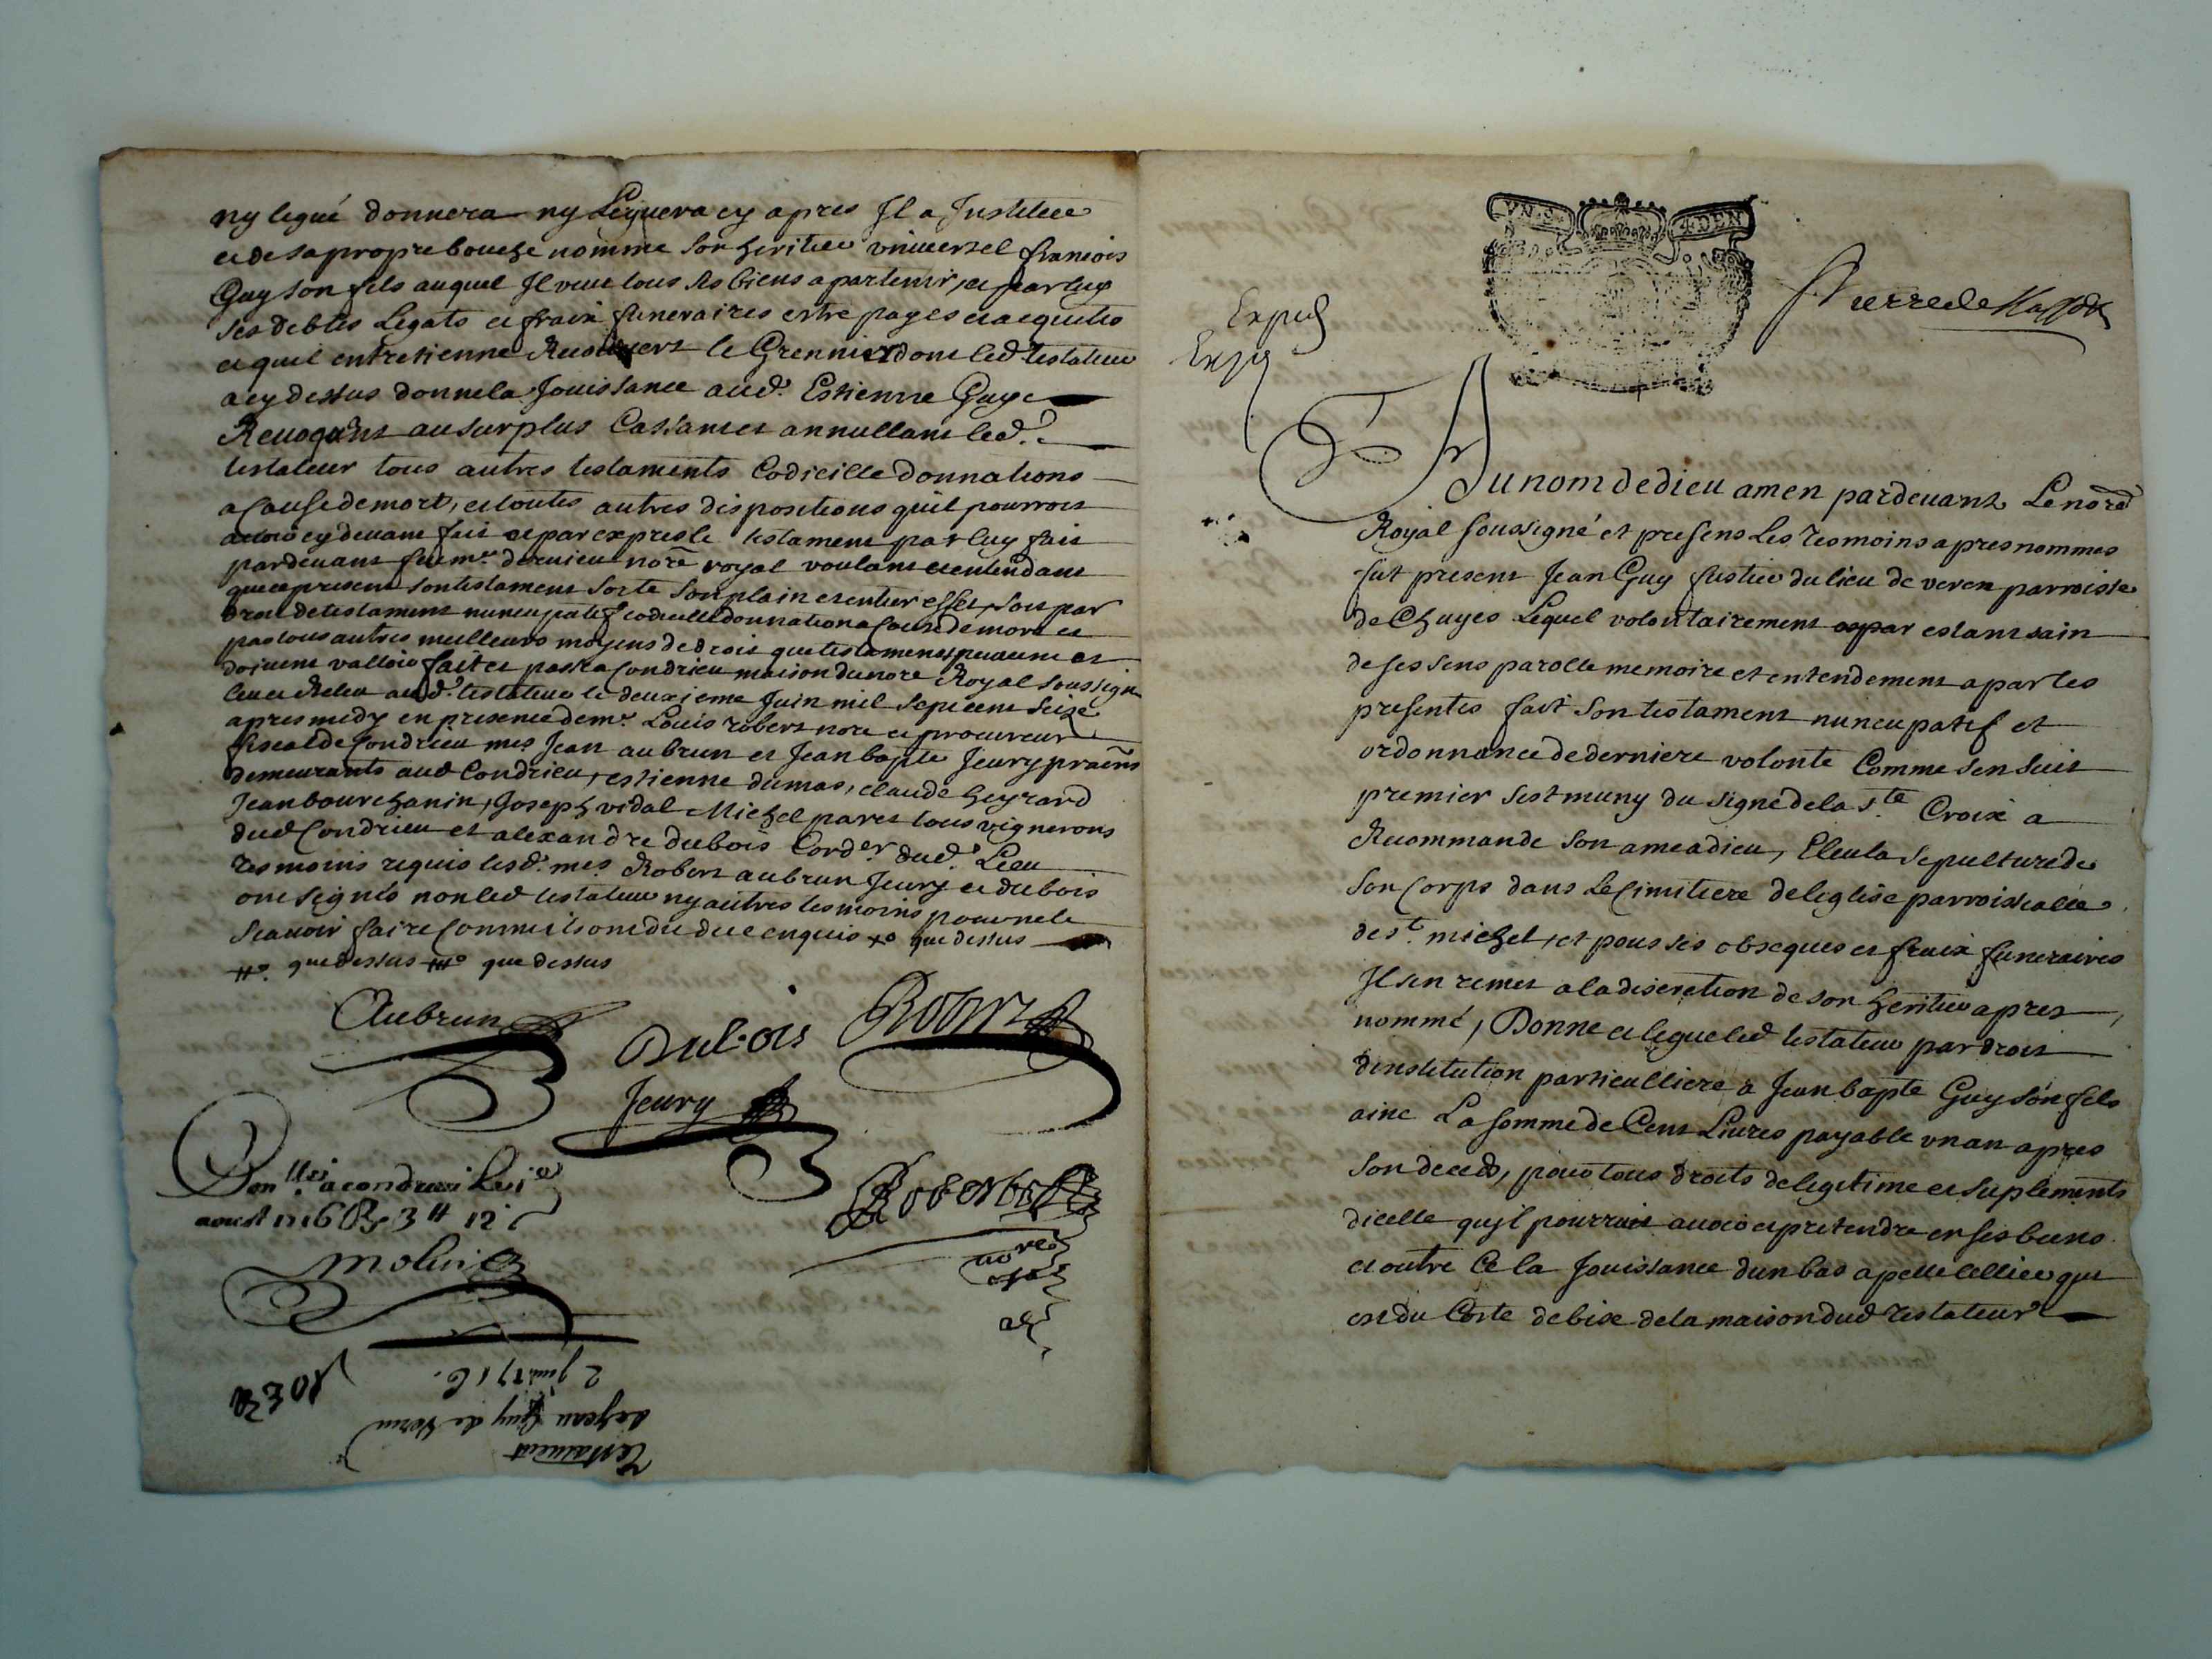 ny legué donnera ny Leguera cy apres Il a Institue
et de sa propre bouche nomme son heritier universel francois
Guy son fils auquel Il veut tous ses biens apartenir, et par luy
ses debtes Legats et fraix funeraires estre payes et acquites
et quil entretienne le Grennier dont led. testateur
a cy dessus donne la Jouissance aud. Estienne Guy
Revoquant au surplus Cassant et annullant led.
testateur tous autres testaments Codicille donnations
a cause de mort, et toutes autres dispositions quil pourroit
avoir cy devant fait et par expres le testament par luy fait
pardevant feu me. nore royal voulant et entendant
que ce present son testament sorte son plain et entier effet, soit par
droit de testament nuncupatif codicille donnation a cause de mort et
par tous autres meilleurs moyens de droit que testaments peuvent et
doivent valloir fait et passé a Condrieu maison du nore Royal soussigné
leu et Releu aud. testateur le deuxieme Juin mil sept cent seize
apres midy en presence de me. Louis robert nore et procureur
fiscal de Condrieu mes Jean aubrun et Jean bapte Jeury
demeurants aud Condrieu, estienne dumas, claude heyrard
Jean bourchanin, Joseph vidal Michel paret tous vignerons
dud Condrieu et alexandre dubois Corder. dud. Lieu
tesmoins requis lesd. mes. Robert aubrun Jeury et dubois
ont signés non led testateur ny autres tesmoins pour ne le
scavoir faire comme ils ont dit de ce enquis que dessus
que dessus que dessus
Aubrun
Dubois
Robert
Jeury
Robert
nore
Con.lle a condrieu Le
aoust 1716 R 3 ₶ 12 s
molin
2 juin 1716.
de jean Guy de Veren
testament
UN S. 4 DEN
Exped
Exp
Au nom de dieu amen pardevant Le nore
Royal soussigné et presens Les tesmoins apres nommes
fut present Jean Guy du lieu de veren parroisse
de Chuyes Lequel volontairement estant sain
de ses sens parolle memoire et entendement a par les
presentes fait son testament nuncupatif et
ordonnance de derniere volonte Comme sensuit
premier sest muny du signe de la ste. Croix a
Recommande son ame a dieu, Eleu la sepulture de
son Corps dans Le Cimitiere de leglise parroissialle
de st. michel, et pour ses obseques et fraix funeraires
Il sen remet a la discretion de son heritier apres
nommé, Donne et legue led testateur par droit
dinstitution particulliere a Jean bapte Guy son fils
aine La somme de Cent Livres payable un an apres
son deces, pour tous droits de legitime et suplements
dicelle quil pourroit avoir et pretendre en ses biens
et outre Ce la Jouissance dun bas apelle cellier qui
est du Coste de bise de la maison dud testateur